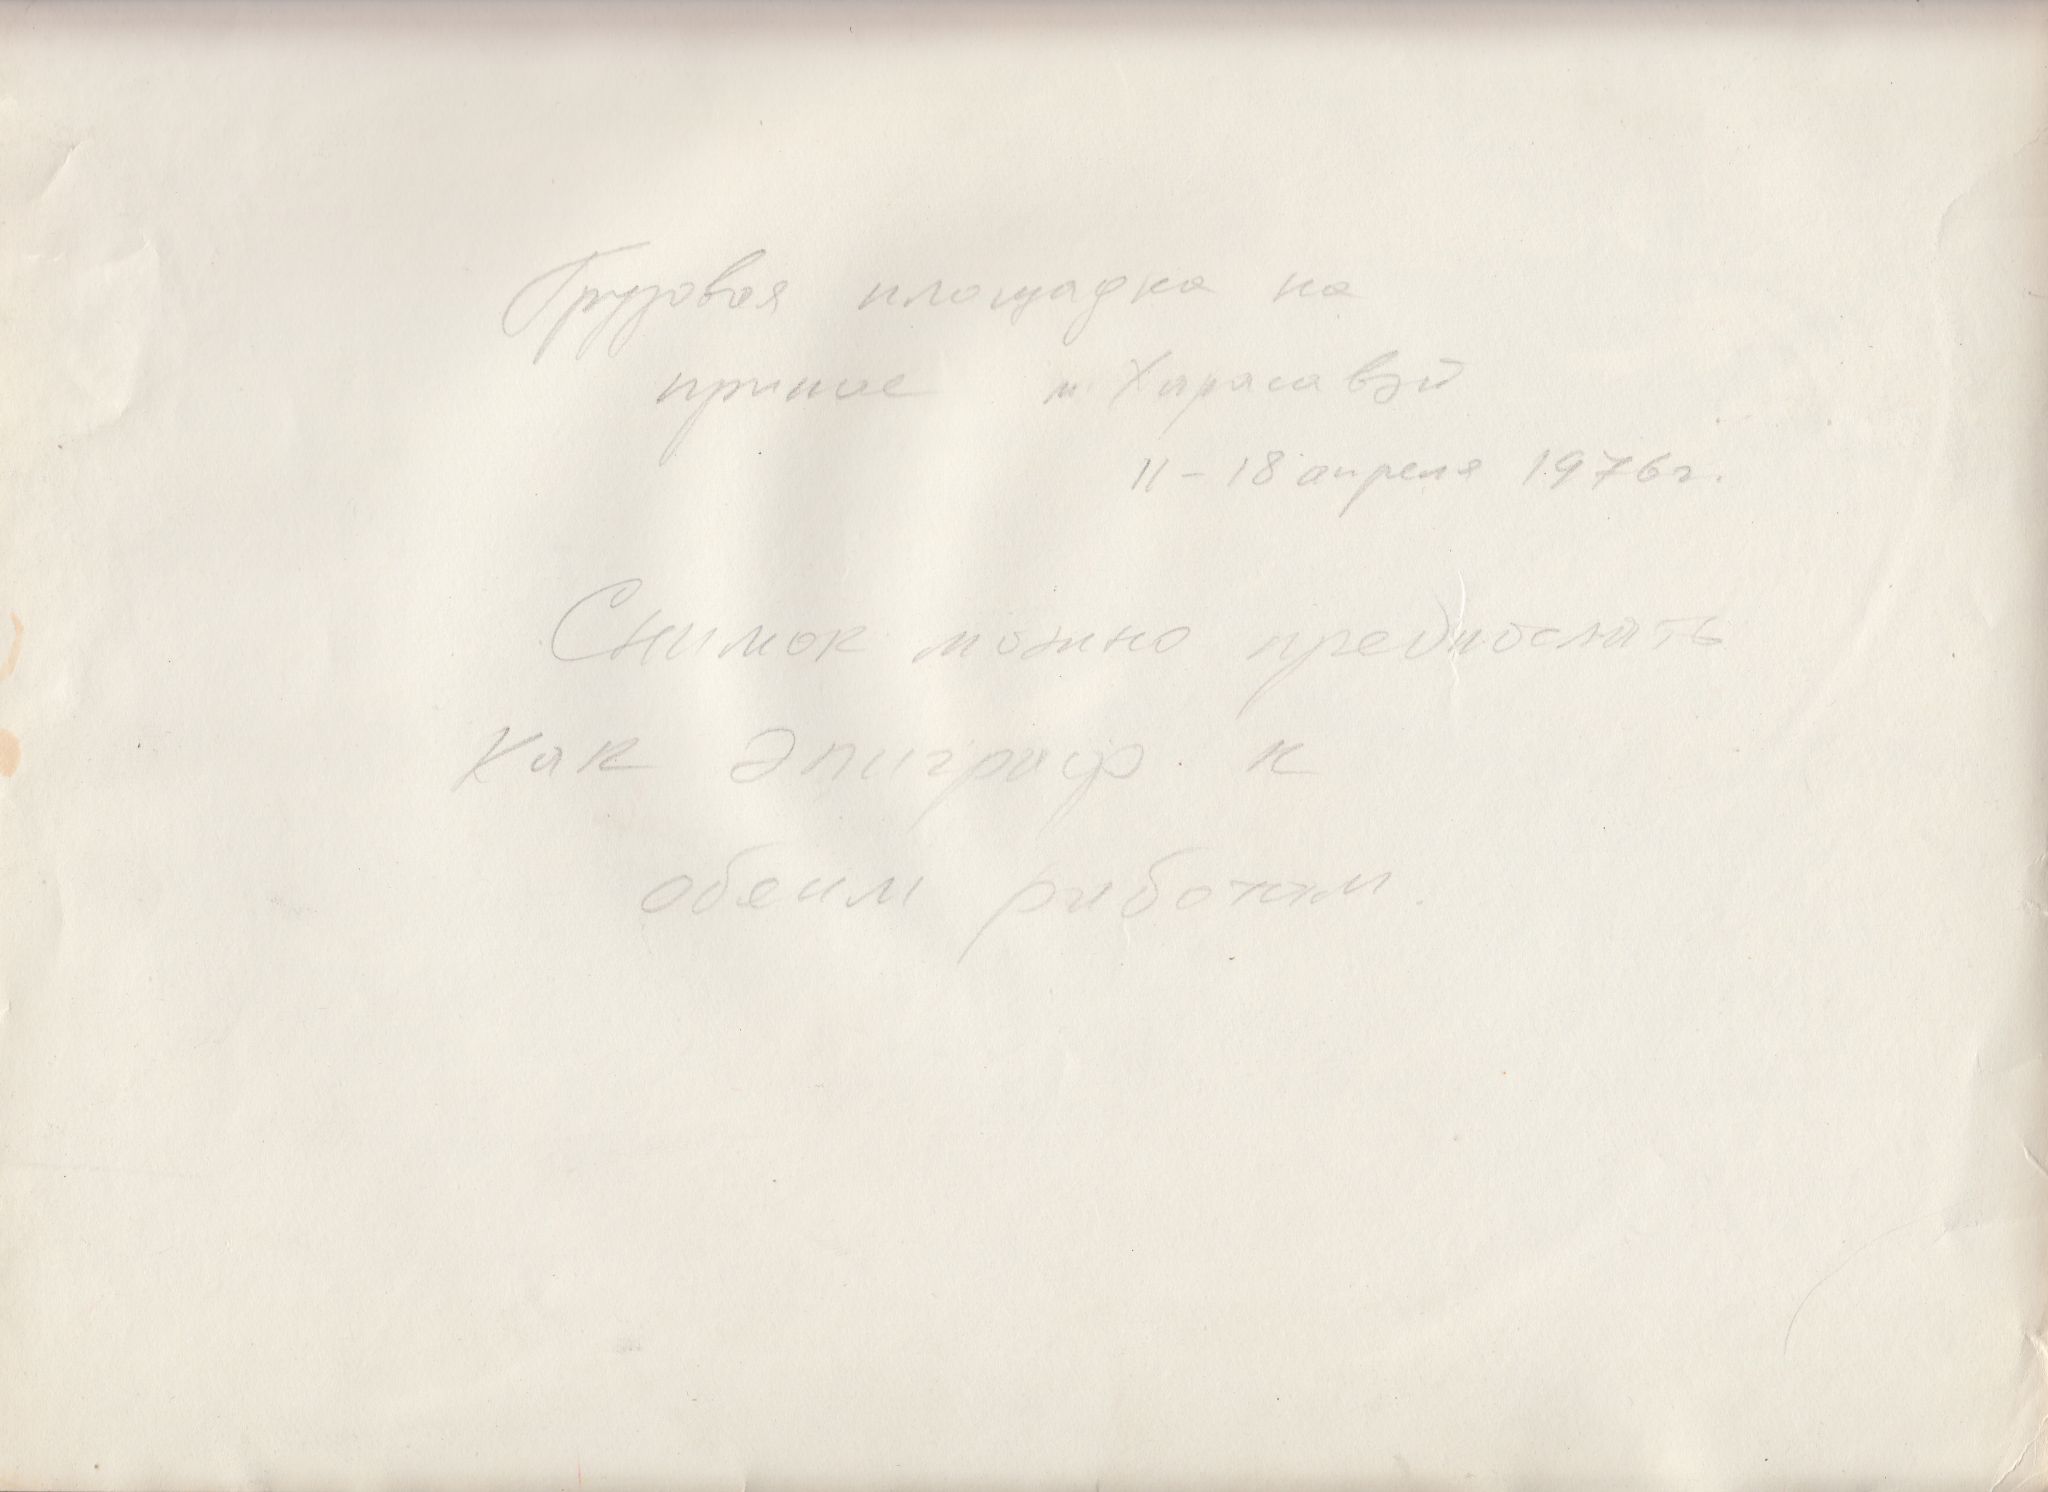 Грузовая площадка на
припае м. Харасавэй
11-18 апреля 1976г.
Снимок можно предпослать
как эпиграф к
обеим работам.